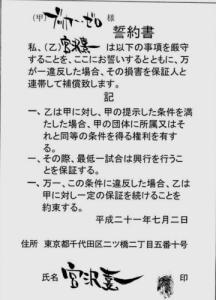 (甲) ブッカーゼロ 様
誓約書
私、(乙)宮沢喜一は以下の事項を厳守
することを、ここにお誓いするとともに、万
が一違反した場合、その損害を保証人と
連帯して補償致します。
記
一、乙は甲に対し、甲の提示した条件を満
たした場合、甲の団体に所属又はそ
れと同等の条件を得る権利を有す
る。
一、その際、最低一試合は興行を行うこ
とを保証する。
一、万一、この条件に違反した場合、乙は
甲に対し一定の保証を続けることを
約束する。
平成二十一年七月二日
住所 東京都千代田区二ツ橋二丁目五番十号
氏名 印